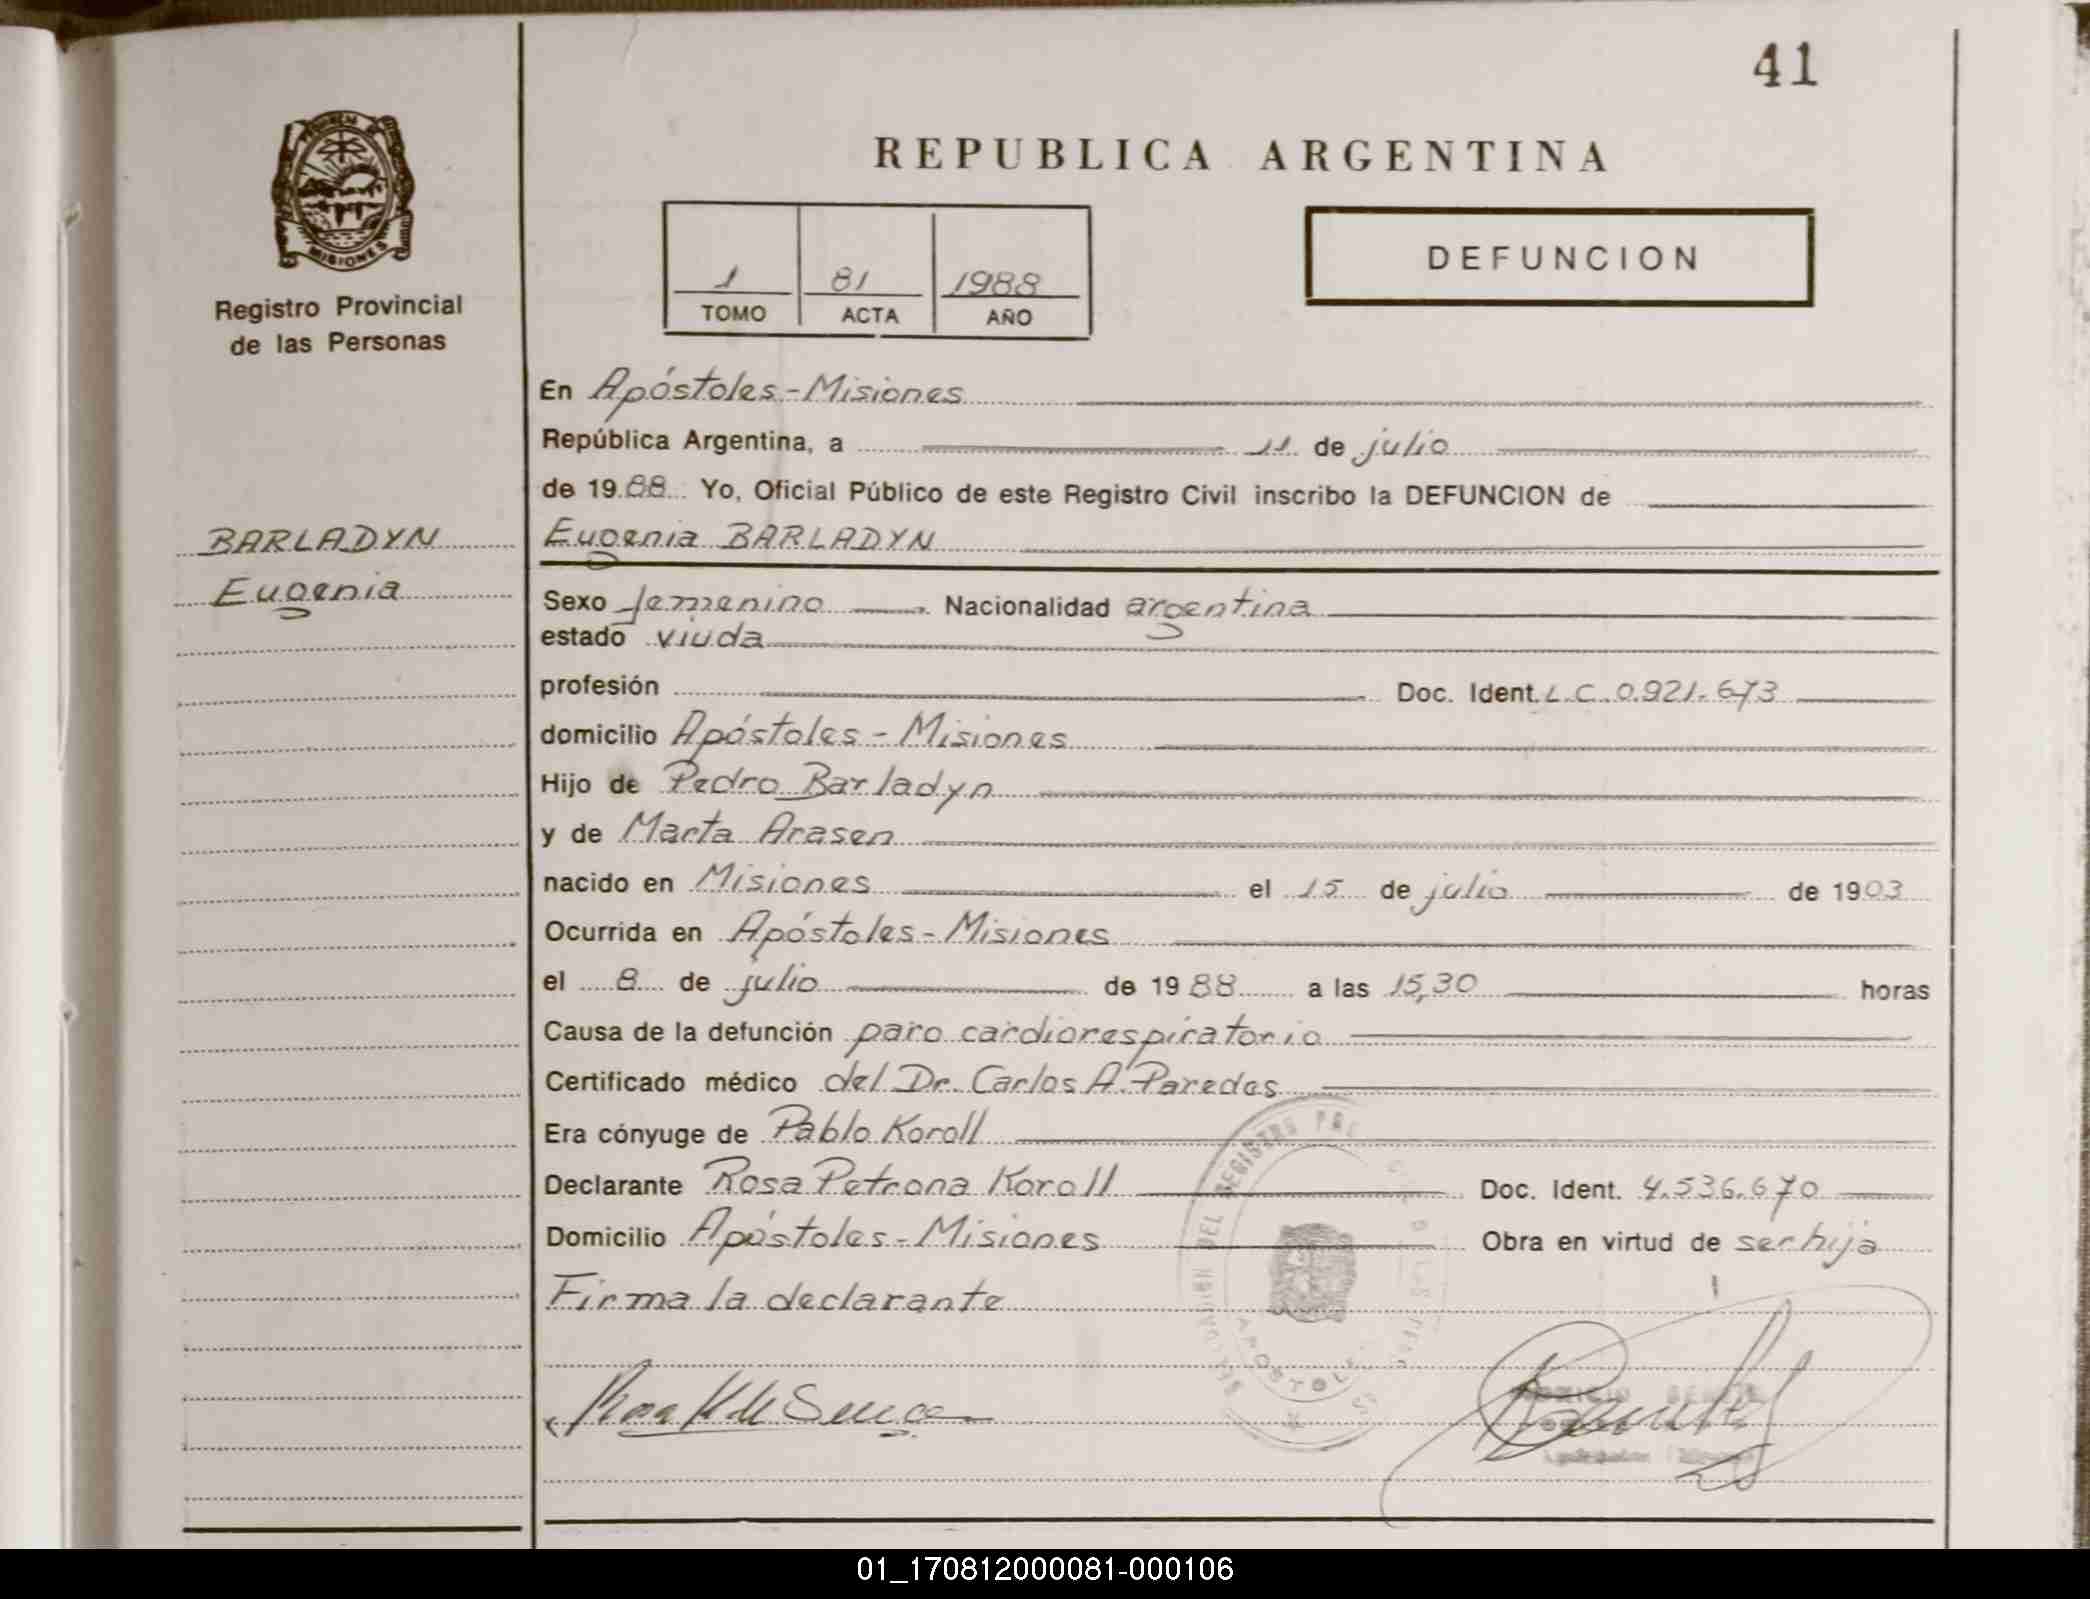 41
PROVINCIA D
MISIONES
Registro Provincial
de las Personas
REPUBLICA ARGENTINA
1 81 1988
TOMO ACTA AÑO
DEFUNCION
En Apóstoles-Misiones
República Argentina, a 11 de julio
de 1988 Yo, Oficial Público de este Registro Civil inscribo la DEFUNCION de
BARLADYN
Eugenia
Eugenia BARLADYN
Sexo femenino Nacionalidad argentina
estado viuda
profesión Doc. Ident. L.C. 0.921.673
domicilio Apóstoles - Misiones
Hijo de Pedro Barladyn
y de Marta Arasen
nacido en Misiones el 15 de julio de 1903
Ocurrida en Apóstoles-Misiones
el 8 de julio de 1988 a las 15,30 horas
Causa de la defunción paro cardiorespiratorio
Certificado médico del Dr. Carlos A. Paredes
Era cónyuge de Pablo Koroll
Declarante Rosa Petrona Koroll Doc. Ident. 4.536.670
Domicilio Apóstoles-Misiones Obra en virtud de ser hija
Firma la declarante
DEL REGISTRO
APOSTOLES
01_170812000081-000106